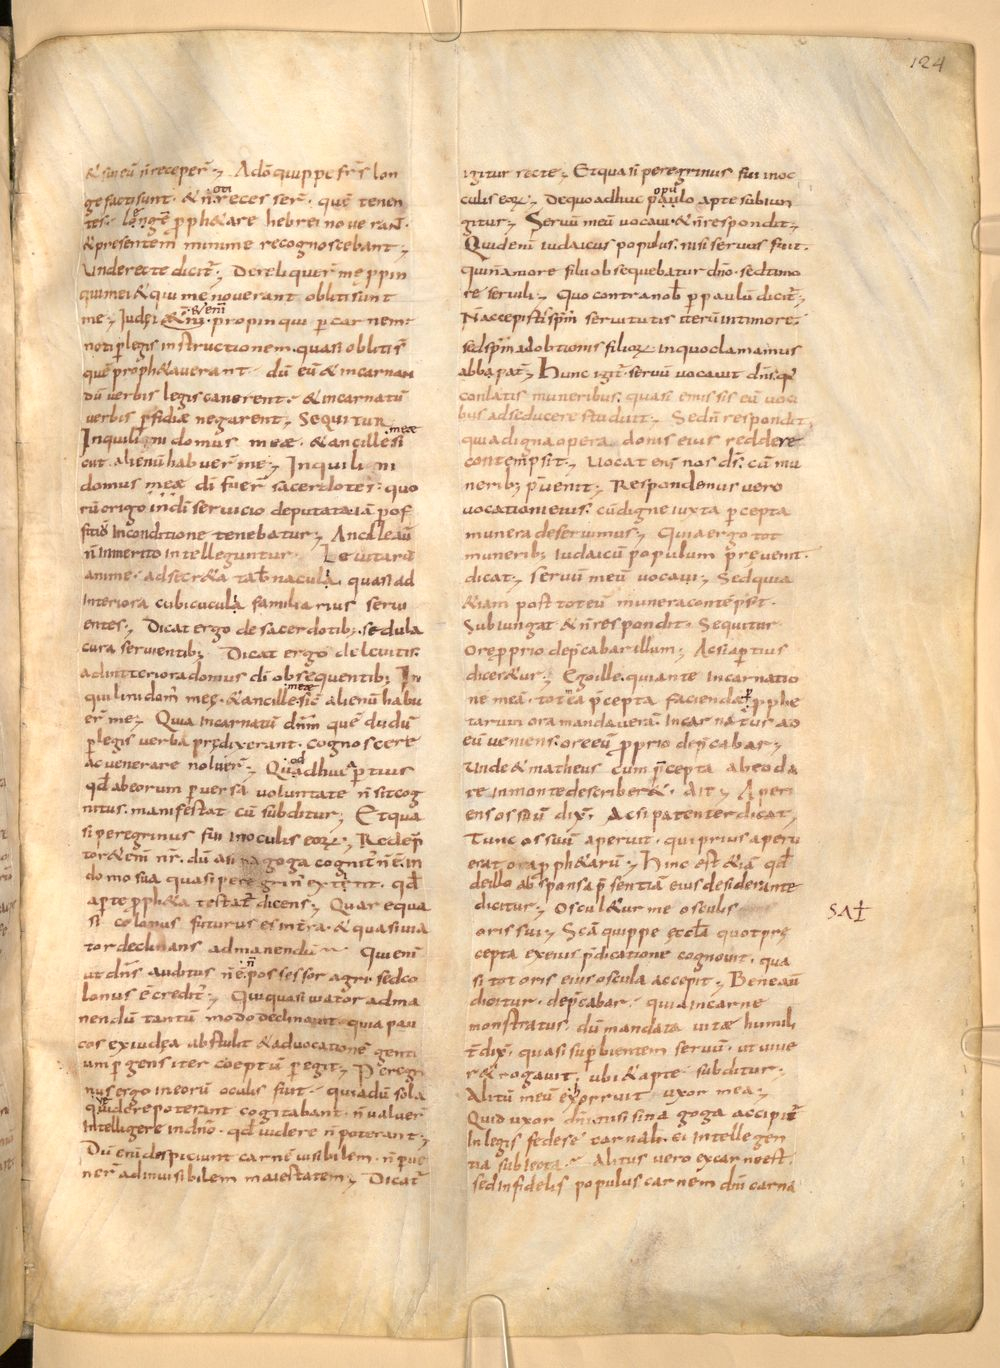 124
& sui eū ñ receper̄. Ad dō quippe frs̄ lon
ge facti sunt. & noti recesser̄. quē tenen
tes longe proph&are hebrei noveraN̄.
& presentem minime recognoscebant
Unde recte dicit̄. Dereliquer̄ me ppin
qui mei & qui me noverant obliti sunt
me. Iudęi & enī propinqui p carnem.
noti p legis instructionem. quasi obliti s̄
quē proph&averant. dū eū & incarnan
dū verbis legis canerent. & incarnatū
verbis pfidiæ negarent. Sequitur
Inquilini domus meæ. & ancille meæ si
cut alienū habuer̄ me. Inquilini
domus meæ di fuer̄ sacerdotes. quo
rū origo in di servicio deputata iā pos
in conditione tenebatur. Ancille aū
ñ inmerito intelleguntur. Levitarū
anime. ad secr&a tab̄nacula quasi ad
interiora cubicula familiarius servi
entes. Dicat ergo de sacerdotib; sedula
cura servientib; Dicat ergo de levitis
ad interiora domus di obsequentib; In
quilini dom̄ meę. & ancille meæ sic̄ alienū habu
er̄ me. Quia incarnatū dn̄m quē dudū
p legis verba prędixerant. cognoscere
ac venerare noluer̄. Quod adhuc aptius
qd̄ ab eorum perversa voluntate ñ sit cog
nitus. manifestat cū subditur. Et qua
si peregrinus fui in oculis eoꝝ. Redēp
tor & enī nr̄. dū a sinagoga cognit̄ ñ ē. in
domo sua quasi peregrin̄ extitit. qd̄
aperte pph&a testat̄ dicens. Quare qua
si colonus futurus es in tr̄a. & quasi via
tor declinans ad manendū Qui enī
ut dn̄s auditus ñ ē. ñ possessor agri. sed co
lonus ē credit̄. Qui quasi viator ad ma
nendū tantū modo declinavit. quia pau
cos ex iudęa abstulit & ad vocationē genti
um pergens iter coeptū peregit. Peregri
nus ergo in eorū oculis fuit. quia dū sola
quę videre poterant cogitabant. ñ valuer̄
intelligere in dn̄o. qd̄ videre ñ poterant.
Dū enī despiciunt carnē visibilem. ñ perve
ner̄ ad invisibilem maiestatem. Dicat̄
igitur recte. Et quasi peregrinus fui in oc
culis eoꝝ. De quo adhuc populo apte subiun
gitur. Servū meū vocavi & ñ respondit.
Quid enī iudaicus populus. nisi servus fuit.
qui ñ amore filii obsequebatur dn̄o. sed timo
re servili. Quo contra nob̄ p paulū dicit̄.
N accepistis spm̄ servitutis iterū in timore.
sed spm̄ adobtionis filioꝝ. in quo clamamus
abba pat̄. Hunc igit̄ servū vocavit dn̄s. qa
conlatis muneribus. quasi emissis eū voci
bus ad se ducere studuit. Sed ñ respondit.
quia digna opera donis eius reddere
contempsit. Vocat enī nos ds̄. cū mu
nerib; p̄venit. Respondemus vero
vocationi eius. cū digne iuxta p̄cepta
munera deservimus. Quia ergo tot
munerib; iudaicū populum p̄revenit.
dicat. servū meū vocavi. Sed quia
&iam post tot eū munera contēpsit.
Subiungat & ñ respondit. Sequitur
Ore pprio dep̄cabar illum. Ac si aptius
dicer&ur. Ego ille. qui ante incarnatio
ne meā. tot ei p̄cepta facienda p pphe
tarum ora mandaverā. Incarnatus ad
eū veniens. ore eū pprio dep̄cabar.
Unde & matheus cum p̄cepta ab eo da
te in monte describer&. Ait. Aperi
ens os suū dix̄. Ac si patenter dicat.
Tunc os suū aperuit. qui prius aperu
erat ora pph&arū. Hinc est &iā qd̄
de illo ab sponsa p̄sentiā eius desiderante
dicitur. Oscul&ur me osculis
SAĪ
oris sui. Scā quippe ęccła quot prę
cepta ex eius p̄dicatione cognovit. qua
si tot oris eius oscula accepit. Bene aū
dicitur. dep̄cabar. quia in carne
monstratus. dū mandata vitæ humili
t̄ dix̄. quasi supbientem servū. ut vive
r& rogavit. ubi & apte subditur.
Alitū meū exhorruit uxor mea.
Quid uxor dn̄i. nisi sinagoga accipit̄
in legis federe carnali. ei intellegen
tia subiecta. Alitus vero ex carne est.
sed infidelis populus carnem dn̄i carna